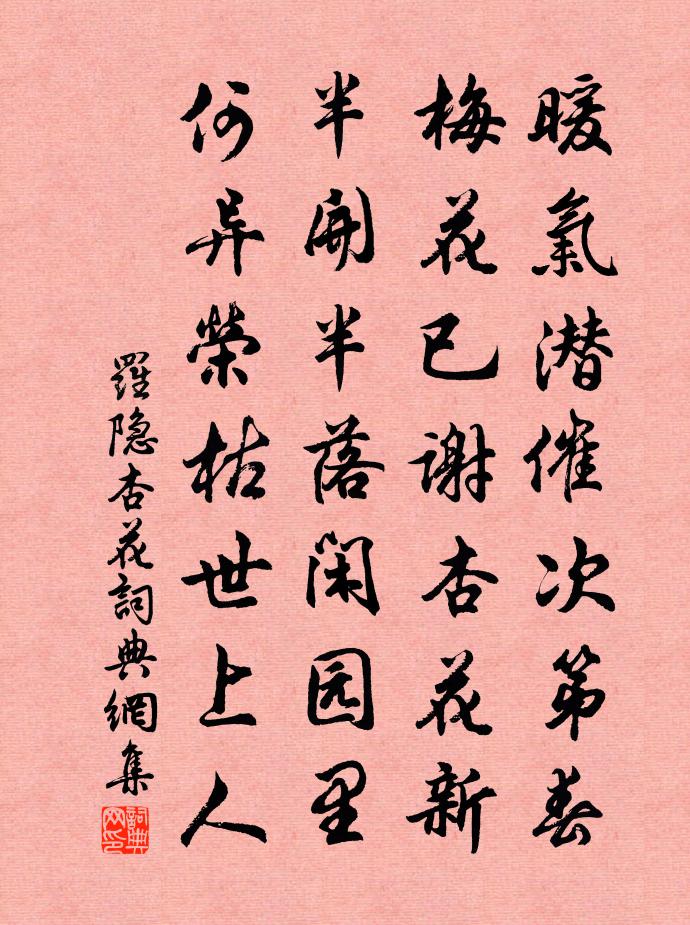 暖氣潜催次第春
梅花已谢杏花新
半開半落闲园里
何异榮枯世上人
羅隐杏花詞典網集
詞典网印